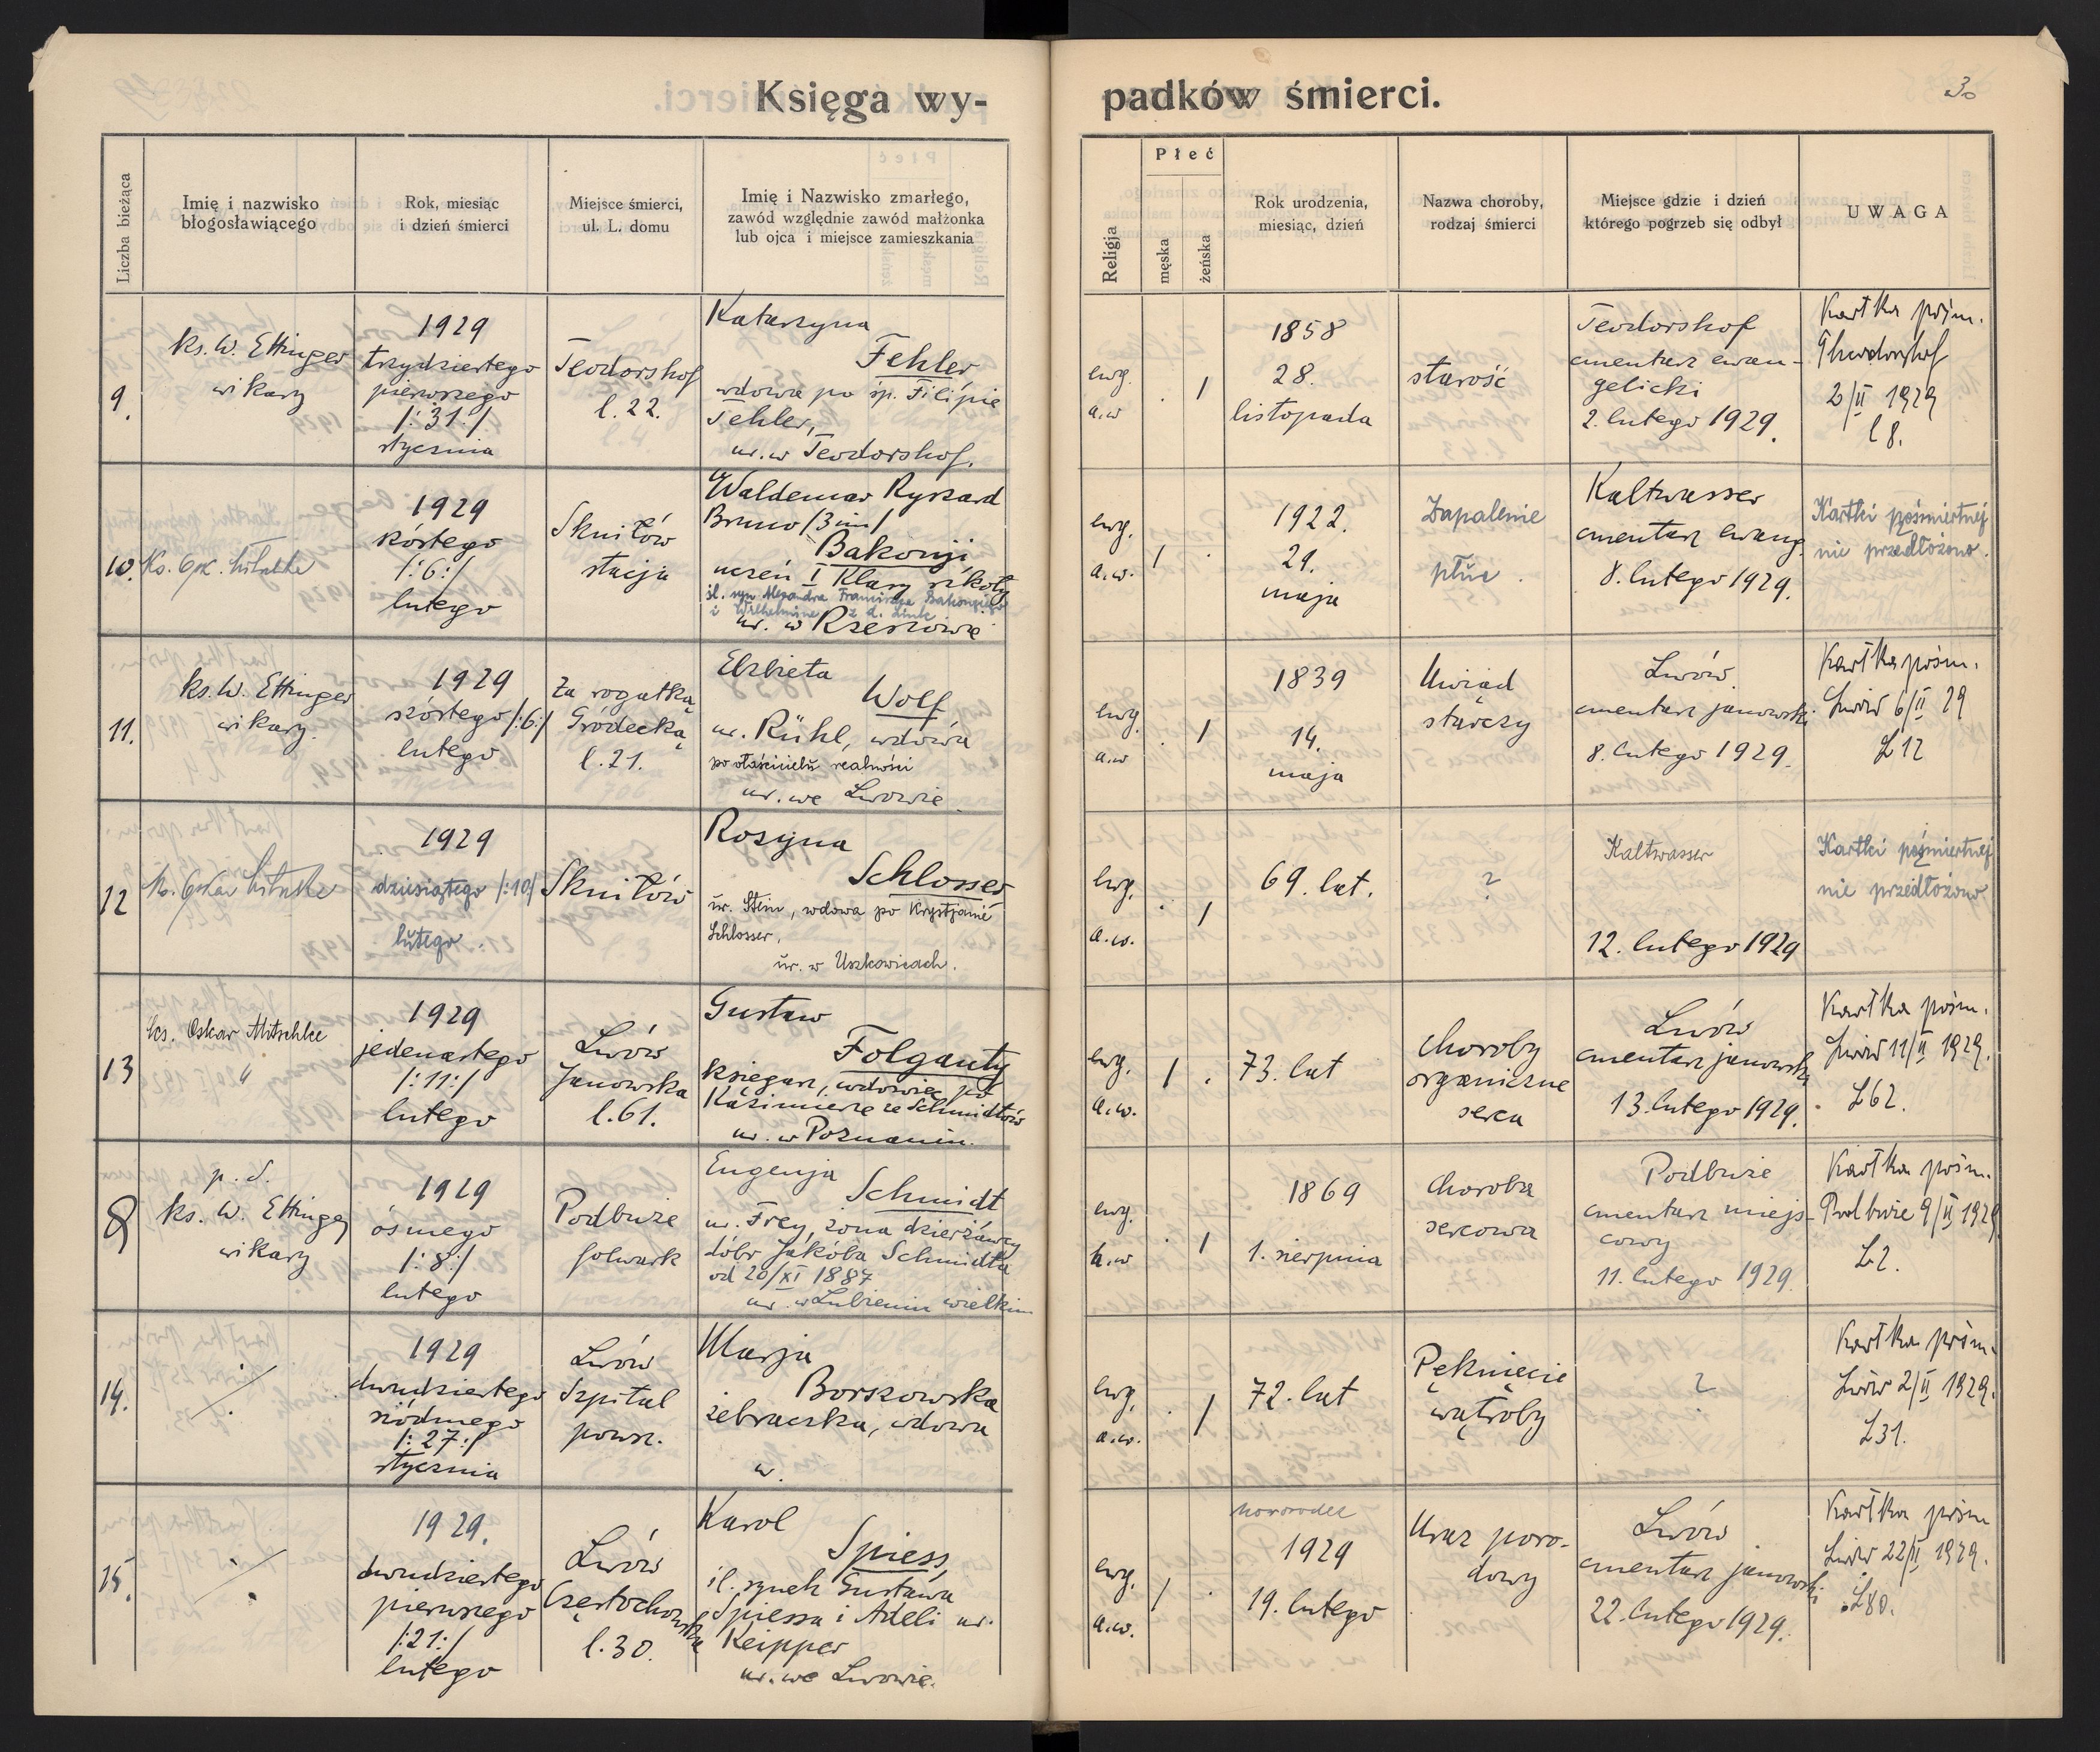 Księga wypadków śmierci.
30
Liczba bieżąca
Imię i nazwisko
błogosławiącego
Rok, miesiąc
i dzień śmierci
Miejsce śmierci,
ul. L. domu
Imię i Nazwisko zmarłego,
zawód względnie zawód małżonka
lub ojca i miejsce zamieszkania
Religja
Płeć
męska
żeńska
Rok urodzenia,
miesiąc, dzień
Nazwa choroby,
rodzaj śmierci
Miejsce gdzie i dzień
którego pogrzeb się odbył
UWAGA
9.
ks. W. Ettinger
wikary
1929
trzydziestego
pierwszego
/:31:/
stycznia
Teodorshof
l. 22.
Katarzyna
Fehler
wdowa po śp. Filipie
Fehler,
ur. w Teodorshof.
ewg.
a.w
. /
1858
28.
listopada
starość
Teodorshof
cmentarz ewan-
gelicki
2. lutego 1929.
Kartka pośm.
Theodorshof
2/II 1929
l 8.
10.
Ks.
1929
szóstego
/:6:/
lutego
Skniłów
stacja
Waldemar Ryszard
Bruno /3 im/
Bakonji
uczeń I klasy szkoły
śl. syn Alexandra Franciszka Bakonjego
i Wilhelmine z d. Link
ur. w Rzeszowie
ewg.
a.w.
/ .
1922.
29.
maja
Zapalenie
płuc.
Kaltwasser
cmentarz ewang.
8. lutego 1929.
Kartki pośmiertnej
nie przedłożono.
11.
ks. W. Ettinger
wikary.
1929
szóstego /:6:/
lutego
Za rogatką
Gródecką
l. 21.
Elżbieta
Wolf
ur. Rühl, wdowa
po właścicielu realności
ur. we Lwowie.
ewg.
a.w
. /
1839
14.
maja
Uwiąd
starczy
Lwów
cmentarz janowski
8. lutego 1929.
Kartka pośm.
Lwów 6/II 29
L 12
12
ks. Oskar Mitschke
1929
dziesiątego /:10/
lutego.
Skniłów
Rozyna
Schlosser
ur. Stein, wdowa po Krystjanie
Schlosser,
ur. w Uszkowicach.
ewg.
a.w.
. /
69. lat.
?
Kaltwasser
12. lutego 1929
Kartki pośmiertnej
nie przedłożono
13
ks. Oskar Mitschke
1929
jedenastego
/:11:/
lutego
Lwów
Janowska
l. 61.
Gustaw
Folganty
księgarz, wdowiec po
Kazimierze ze Schmidtów
ur. w Poznaniu.
ewg.
a.w.
/ .
73. lat
choroby
organiczne
serca
Lwów
cmentarz janowski
13. lutego 1929.
Kartka pośm.
Lwów 11/II 1929.
L 62.
8
p. d.
ks. W. Ettinger
wikary
1929
ósmego
/:8:/
lutego
Podbuże
folwark
Eugenja
Schmidt
ur. Frey, żona dzierżawcy
dóbr Jakóba Schmidta
od 20/XI 1887
ur. w Lubieniu wielkim
ewg.
h.w
. /
1869
1. sierpnia
choroba
sercowa
Podbuże
cmentarz miejs-
cowy
11. lutego 1929.
Kartka pośm.
Podbuże 9/II 1929
L 2.
14.
1929
dwudziestego
siódmego
/:27:/
stycznia
Lwów
Szpital
powsz.
Marja
Borszowska
żebraczka, wdowa
w.
ewg.
a.w.
. /
72. lat
Pęknięcie
wątroby
?
Kartka pośm.
Lwów 2/II 1929.
L 31.
15.
1929.
dwudziestego
pierwszego
/:21:/
lutego
Lwów
Częstochowska
l. 30.
Karol
Spiess
śl. synek Gustawa
Spiessa i Adeli ur.
Keipper
ur. we Lwowie.
ewg.
a.w.
/ .
noworodek
1929
19. lutego
Uraz poro-
dowy
Lwów
cmentarz janowski
22. lutego 1929.
Kartka pośm
Lwów 22/II 1929.
L 80.